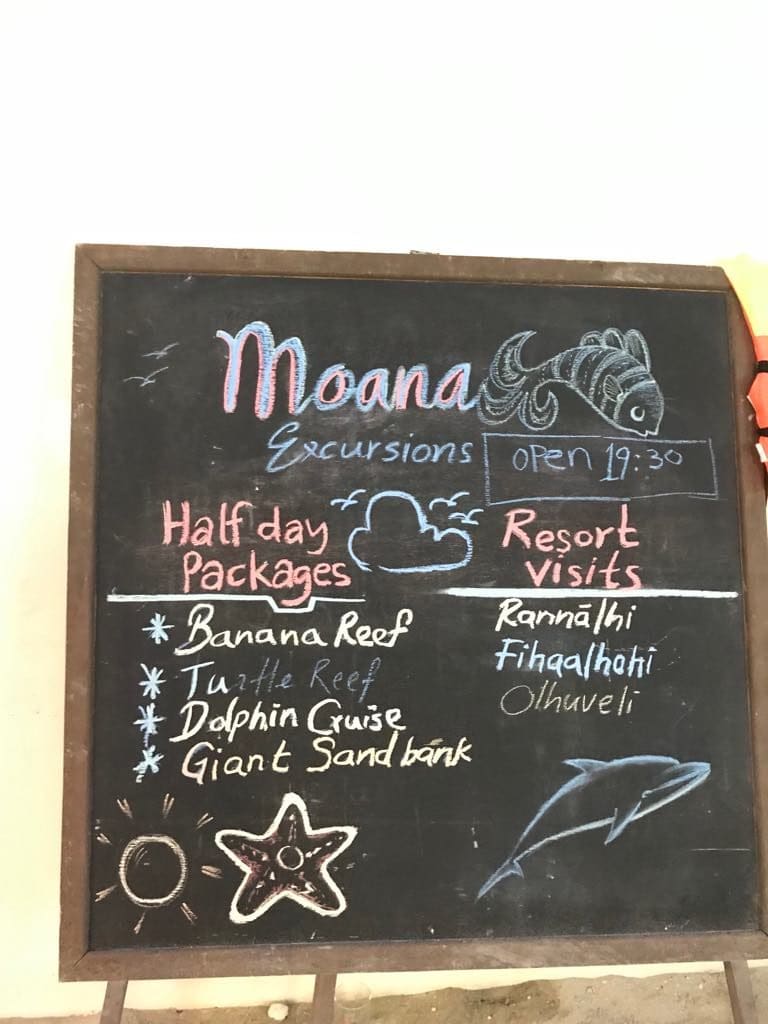 Moana
Excursions
open 19:30
Half day
Packages
* Banana Reef
* Turtle Reef
* Dolphin Cruise
* Giant Sand bank
Resort
visits
Rannālhi
Fihaalhohi
Olhuveli